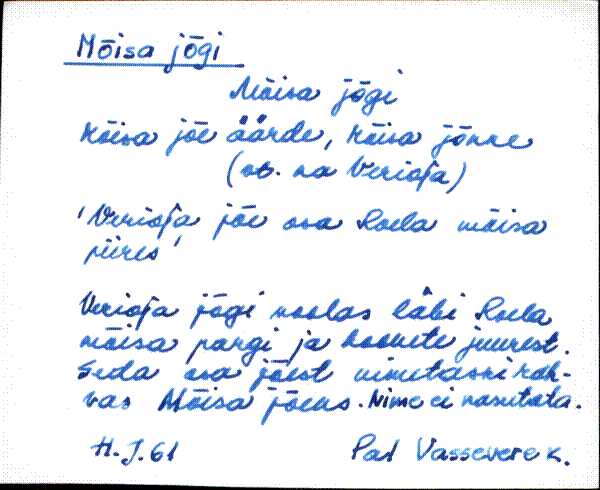 Mõisa jõgi
Mõisa jõgi
Mõisa jõe äärde, Mõisa jõnne
(os. na Verioja)
'Verioja jõe osa Roela mõisa
piires'
Verioja jõgi voolas läbi Roela
mõisa pargi ja hoonete juurest.
Seda osa jõest nimetaski rah-
vas Mõisa jõeks. Nime ei kasutata.
H. J. 61
Pal Vassevere k.